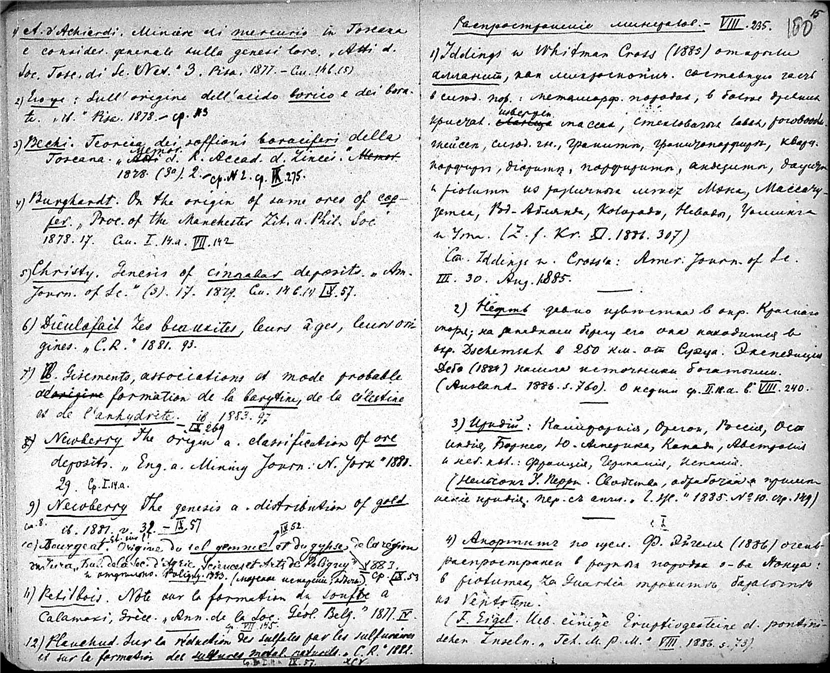 1) A. d'Achiardi. Miniere di mercurio in Toscana
e consider. generale sulla genesi loro. „Atti d.
Soc. Tosc. di Sc. Nat." 3. Pisa. 1877. – См. 146.
2) : Sull'origine dell'acido borico e dei bora-
ti. „it." Pisa. 1878. – ср. №3
3) Bechi. Teoria dei soffioni boraciferi della
Toscana. „Atti d. R. Accad. d. Lincei." Memor
1878. (3°). 2. – ср. №2. ср. IX. 275.
4) Burghardt. On the origin of some ores of cop-
per. „Proc. of the Manchester Lit. a. Phil. Soc
1878. 17. См. I. 14.a. VII. 142
5) Christy. Genesis of cinnabar deposits. „Am.
Journ. of Sc." (3). 17. 1879. См. 146. IX. 57.
6) Dieulafait Les bauxites, leurs âges, leurs ori-
gines. „C.R." 1881. 93.
7) Gisements, associations et mode probable
de formation de la barytine, de la célestine
et de l'anhydrite. ib. 1883. 97
IX. 269
8) Newberry The origin a. classification of ore
deposits. „Eng. a. Mining Journ. N. York" 1880.
29. Ср. I. 14.a.
9) Newberry The genesis a. distribution of gold
ib. 1881. v. 32. – IX. 57
IX. 52.
10) Bourgeat. Origine du sel gemme et du gypse, de la région
du Jura, „Bul. de la Soc. d'Agric. Sciences et Arts de Poligny" 1883.
Poligny. 1883. Ср. IX. 53
11) Petitbois. Note sur la formation du soufre à
Calamaki, Grèce. „Ann. de la Soc. Géol. Belg." 1877. IV.
VII. 145.
12) Planchud. Sur la réduction des sulfates par les sulfuraires
et sur la formation des sulfures métal. naturels. „C.R." 1882.
IX. 57. XCV
15
Распространение минералов. – VIII. 235.
160
1) Iddings и Whitman Cross (1885) открыли
алланит, как микроскопич. составную часть
в след. пор.: метаморф. породах, в более древних
кристал. изверген. массах, стекловатых лавах, роговообм.
гнейсах, слюд. гн., гранитах, гранитпорфирах, кварц.
порфирах, диоритах, порфиритах, андезитах, дацитах
и риолитах из различных мест Мэна, Массачу-
зетса, Род-Айланда, Колорадо, Невады, Уоминга
и Ута. (Z. f. Kr. XI. 1886. 307)
См. Iddings и. Cross'a: Amer. Journ. of Sc.
III. 30. Aug. 1885.
2) Нефть давно известна в окр. Красного
моря; на западном берегу его она находится в
окр. Dschemsah в 250 км. от Суэца. Экспедиция
Дебо (188) нашла источники богатыми.
(Ausland. 1886. s. 760). О нефти ср. II. 11.a. в VIII. 240.
3) Иридий: Калифорния, Орегон, Россия, Ост
Индия, Борнео, Ю. Америка, Канада, Австралия
и нек. : Франция, Германия, Испания.
(Нельсон У. Перри. Свойства, обработка и приме-
нение иридия, пер. с англ. „Г. Ж." 1885. № 10. стр. 149)
I
4) Анортит по исл. Ф. Эйгеля (1886) очень
распространен в разных породах о-ва Понца:
в риолитах, La Guardia трахитах, базальтах
из Ventotene.
(F. Eigel. Ueb. einige Eruptivgesteine d. pontini-
schen Inseln. „Tsch. M. P. M." VIII. 1886. s. 73).